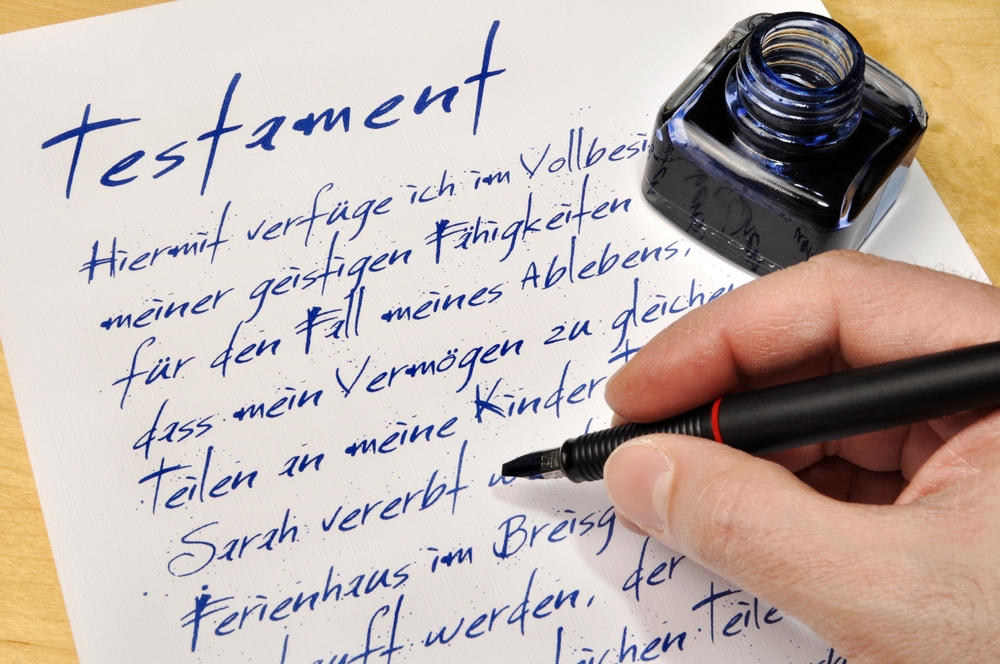 Testament
Hiermit verfüge ich im Vollbesi
meiner geistigen Fähigkeiten
für den Fall meines Ablebens,
dass mein Vermögen zu gleichen
Teilen an meine Kinder T
Sarah vererbt w
Ferienhaus im Breisg
auft werden, der
leichen Teile